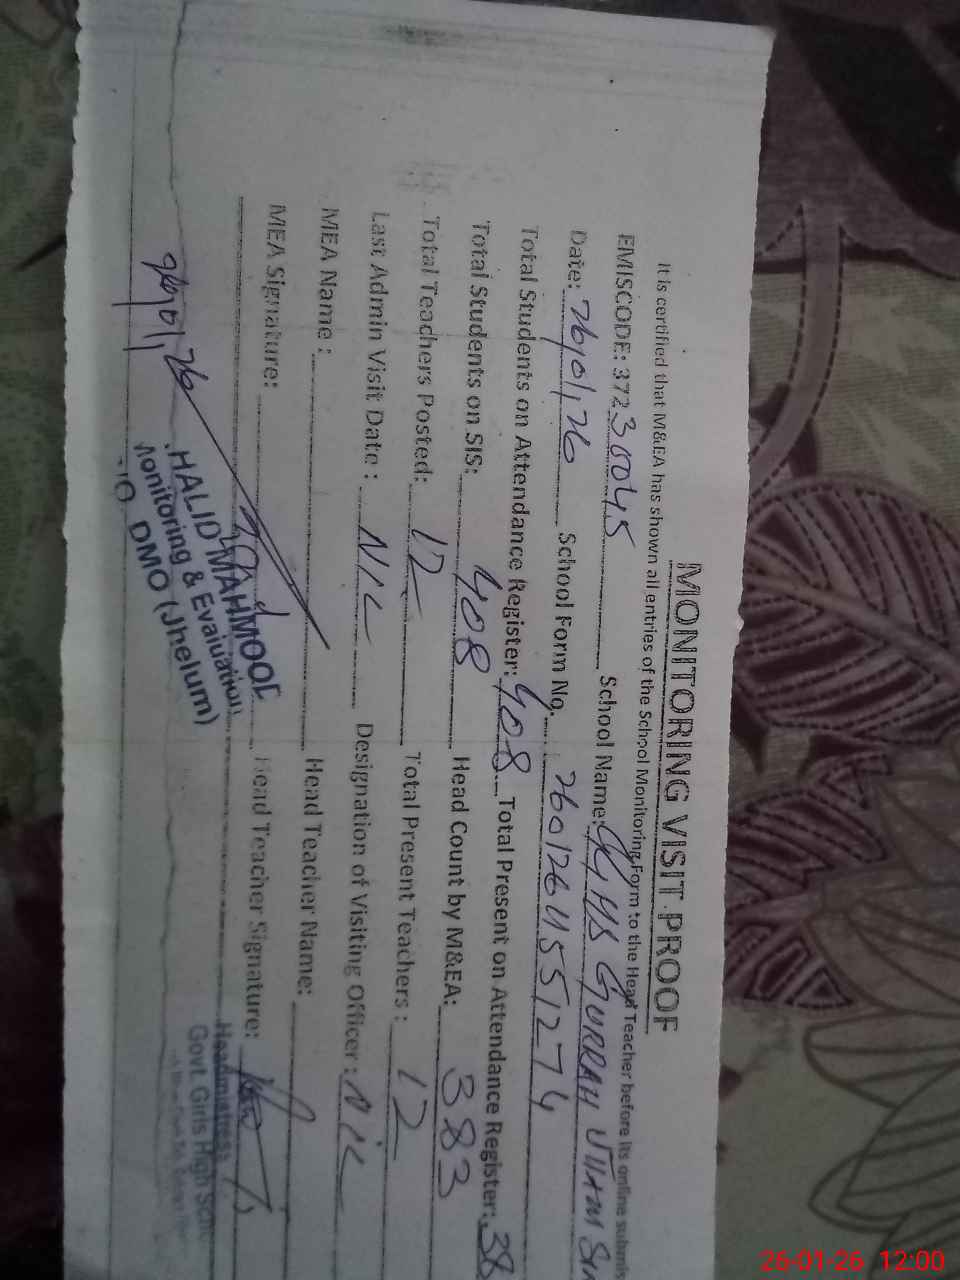 MONITORING VISIT PROOF
It is certified that M&EA has shown all entries of the School Monitoring Form to the Head Teacher before its online submis
EMISCODE: 37230045 School Name: GGHS GURRAH
Date: 26/01/26 School Form No. 26012641551274
Total Students on Attendance Register: 408 Total Present on Attendance Register: 38
Total Students on SIS: 408 Head Count by M&EA: 383
Total Teachers Posted: 12 Total Present Teachers: 12
Last Admin Visit Date: NIL Designation of Visiting Officer: NIL
MEA Name: Head Teacher Name:
MEA Signature: Head Teacher Signature:
26/01/26
HALID MAHMOOD
Monitoring & Evaluation
DMO (Jhelum)
Headmistress
Govt. Girls High
26-01-26 12:00